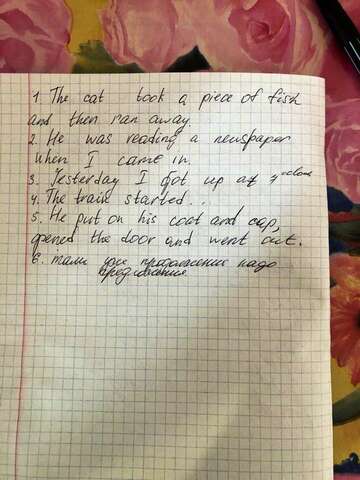 1. The cat took a piece of fish
and then ran away.
2. He was reading a newspaper
when I came in.
3. Yesterday I got up at 7 o'clock
4. The train started...
5. He put on his coat and cap,
opened the door and went out.
6. там уже продолжение надо
предложение